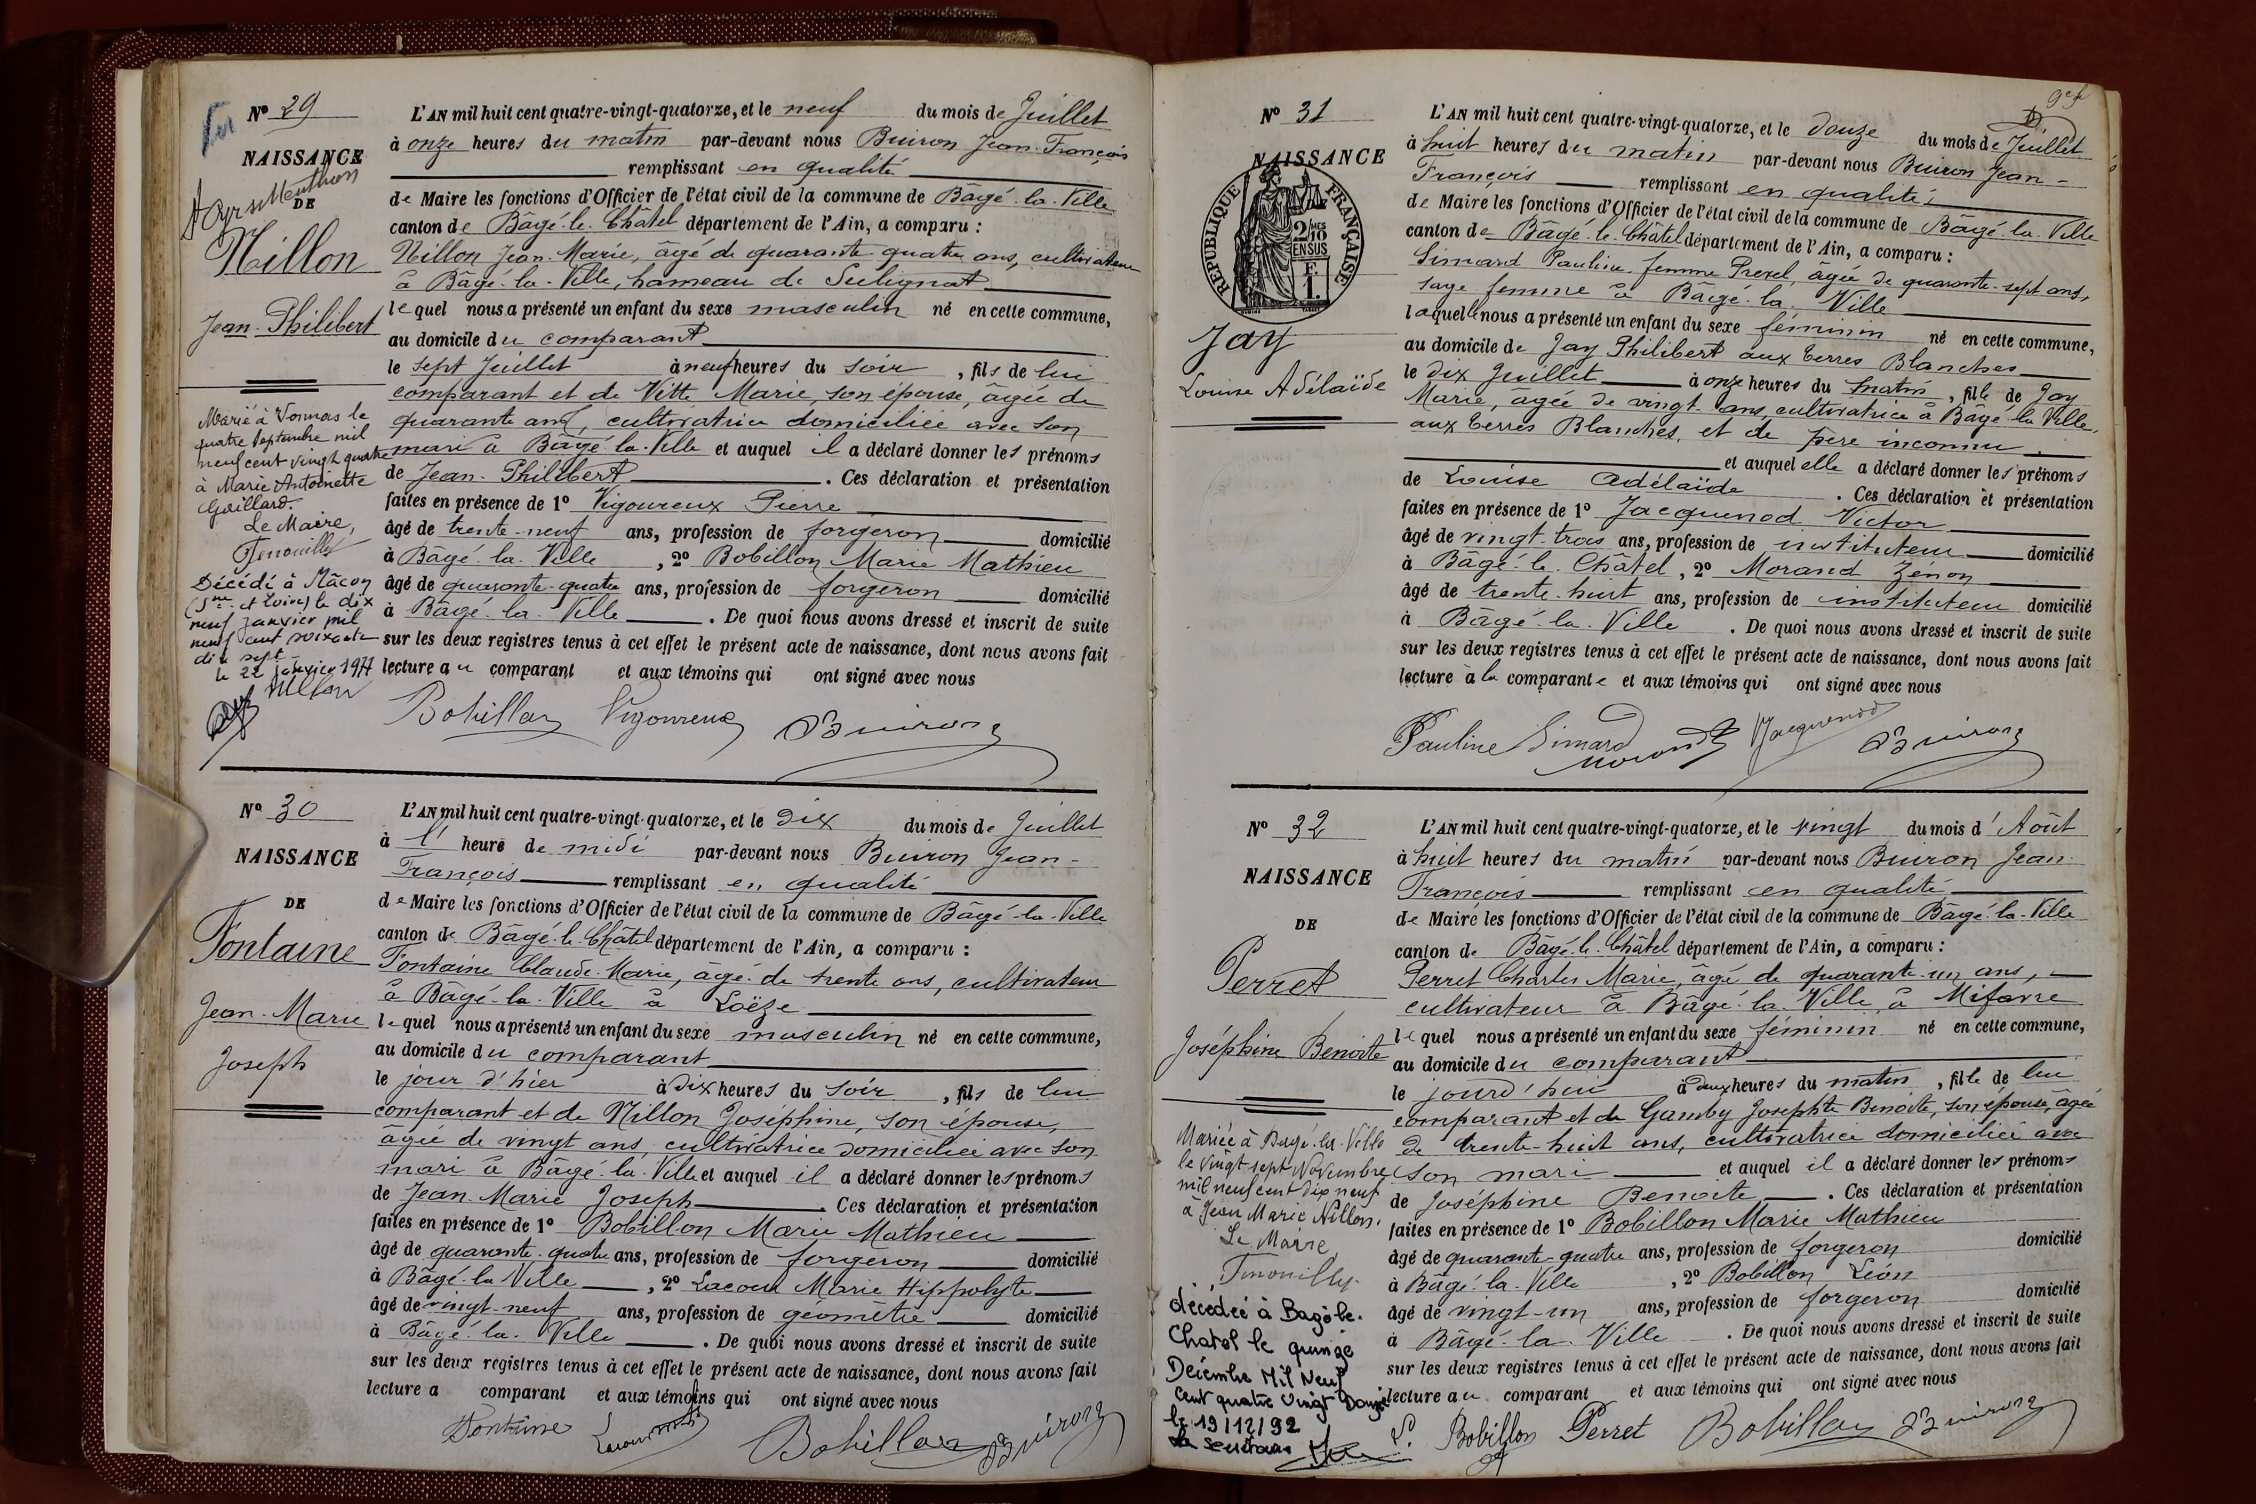 Nº 29
NAISSANCE
DE
Nillon
Jean-Philibert
Marié à Vonnas le
quatre Septembre mil
neuf cent vingt quatre
à Marie Antoinette
Gaillard.
Le Maire,
Décédé à Mâcon
(Sne et Loire) le dix
neuf janvier mil
neuf cent soixante
dix sept
le 22 janvier 1977
L'AN mil huit cent quatre-vingt-quatorze, et le neuf du mois de Juillet
à onze heures du matin par-devant nous Buiron Jean-François
remplissant en qualité
de Maire les fonctions d'Officier de l'état civil de la commune de Bâgé-la-Ville
canton de Bâgé-le-Châtel département de l'Ain, a comparu :
Nillon Jean-Marie, âgé de quarante quatre ans, cultivateur
à Bâgé-la-Ville, hameau de Sulignat
lequel nous a présenté un enfant du sexe masculin né en cette commune,
au domicile du comparant
le sept Juillet à neuf heures du soir, fils de lui
comparant et de Vitte Marie, son épouse, âgée de
quarante ans, cultivatrice domiciliée avec son
mari à Bâgé-la-Ville et auquel il a déclaré donner les prénoms
de Jean-Philibert. Ces déclaration et présentation
faites en présence de 1º Vigoureux Pierre
âgé de trente-neuf ans, profession de forgeron domicilié
à Bâgé-la-Ville, 2º Bobillon Marie Mathieu
âgé de quarante-quatre ans, profession de forgeron domicilié
à Bâgé-la-Ville. De quoi nous avons dressé et inscrit de suite
sur les deux registres tenus à cet effet le présent acte de naissance, dont nous avons fait
lecture au comparant et aux témoins qui ont signé avec nous
Nillon Bobillon Vigoureux Buiron
Nº 30
NAISSANCE
DE
Fontaine
Jean-Marie
Joseph
L'AN mil huit cent quatre-vingt-quatorze, et le dix du mois de Juillet
à l' heure de midi par-devant nous Buiron Jean-
François remplissant en qualité
de Maire les fonctions d'Officier de l'état civil de la commune de Bâgé-la-Ville
canton de Bâgé-le-Châtel département de l'Ain, a comparu :
Fontaine Claude-Marie, âgé de trente ans, cultivateur
à Bâgé-la-Ville à Loëze
lequel nous a présenté un enfant du sexe masculin né en cette commune,
au domicile du comparant
le jour d'hier à dix heures du soir, fils de lui
comparant et de Nillon Joséphine, son épouse,
âgée de vingt ans, cultivatrice domiciliée avec son
mari à Bâgé-la-Ville et auquel il a déclaré donner les prénoms
de Jean Marie Joseph. Ces déclaration et présentation
faites en présence de 1º Bobillon Marie Mathieu
âgé de quarante-quatre ans, profession de forgeron domicilié
à Bâgé-la-Ville, 2º Lacour Marie Hippolyte
âgé de vingt-neuf ans, profession de géomètre domicilié
à Bâgé-la-Ville. De quoi nous avons dressé et inscrit de suite
sur les deux registres tenus à cet effet le présent acte de naissance, dont nous avons fait
lecture a comparant et aux témoins qui ont signé avec nous
Fontaine Bobillon Buiron
Nº 31
NAISSANCE
RÉPUBLIQUE FRANÇAISE
2/10 MES
EN SUS
Jay
Louise Adélaïde
L'AN mil huit cent quatre-vingt-quatorze, et le douze du mois de Juillet
à huit heures du matin par-devant nous Buiron Jean-
François remplissant en qualité
de Maire les fonctions d'Officier de l'état civil de la commune de Bâgé-la-Ville
canton de Bâgé-le-Châtel département de l'Ain, a comparu :
Simard Pauline femme Prexel, âgée de quarante-sept ans,
sage femme à Bâgé-la-Ville
laquelle nous a présenté un enfant du sexe féminin né en cette commune,
au domicile de Jay Philibert aux Terres Blanches
le dix Juillet à onze heures du matin, fille de Jay
Marie, agée de vingt ans, cultivatrice à Bâgé-la-Ville,
aux Terres Blanches, et de père inconnu
et auquel elle a déclaré donner les prénoms
de Louise Adélaïde. Ces déclaration et présentation
faites en présence de 1º Jacquenod Victor
âgé de vingt-trois ans, profession de instituteur domicilié
à Bâgé-le-Châtel, 2º Morand Zénon
âgé de trente-huit ans, profession de instituteur domicilié
à Bâgé-la-Ville. De quoi nous avons dressé et inscrit de suite
sur les deux registres tenus à cet effet le présent acte de naissance, dont nous avons fait
lecture à la comparante et aux témoins qui ont signé avec nous
Pauline Simard Morand Jacquenod Buiron
Nº 32
NAISSANCE
DE
Perret
Joséphine Benoite
Mariée à Bagé-la-Ville
le vingt sept Novembre
mil neuf cent dix neuf
à Jean Marie Nillon.
Le Maire
décédée à Bagé le
Chatel le quinze
Décembre Mil Neuf
cent quatre Vingt Douze
le 19/12/92
L'AN mil huit cent quatre-vingt-quatorze, et le vingt du mois d'Août
à huit heures du matin par-devant nous Buiron Jean
François remplissant en qualité
de Maire les fonctions d'Officier de l'état civil de la commune de Bâgé-la-Ville
canton de Bâgé-le-Châtel département de l'Ain, a comparu :
Perret Charles Marie, âgé de quarante-un ans,
cultivateur à Bâgé-la-Ville, à Mifavre
lequel nous a présenté un enfant du sexe féminin né en cette commune,
au domicile du comparant
le jourd'hui à deux heures du matin, fille de lui
comparant et de Gamby Josephte Benoite, son épouse, âgée
de trente-huit ans, cultivatrice domiciliée avec
son mari et auquel il a déclaré donner les prénoms
de Joséphine Benoite. Ces déclaration et présentation
faites en présence de 1º Bobillon Marie Mathieu
âgé de quarante-quatre ans, profession de forgeron domicilié
à Bâgé-la-Ville, 2º Bobillon Léon
âgé de vingt-un ans, profession de forgeron domicilié
à Bâgé-la-Ville. De quoi nous avons dressé et inscrit de suite
sur les deux registres tenus à cet effet le présent acte de naissance, dont nous avons fait
lecture au comparant et aux témoins qui ont signé avec nous
L. Bobillon Perret Bobillon Buiron